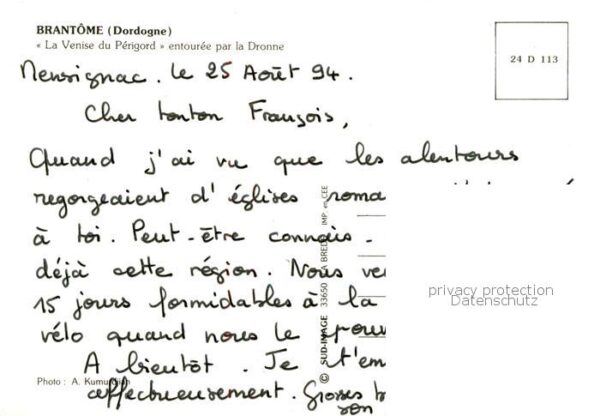 BRANTÔME (Dordogne)
« La Venise du Périgord » entourée par la Dronne
24 D 113
le 25 Août 94.
Cher tonton François,
Quand j'ai vu que les alentours
regorgeaient d'églises
à toi. Peut-être connais-
déjà cette région. Nous
15 jours formidables à la
vélo quand nous le
A bientôt. Je
affectueusement. Grosses
son
Photo : A.
© SUD-IMAGE 33650
IMP. en CEE
privacy protection
Datenschutz